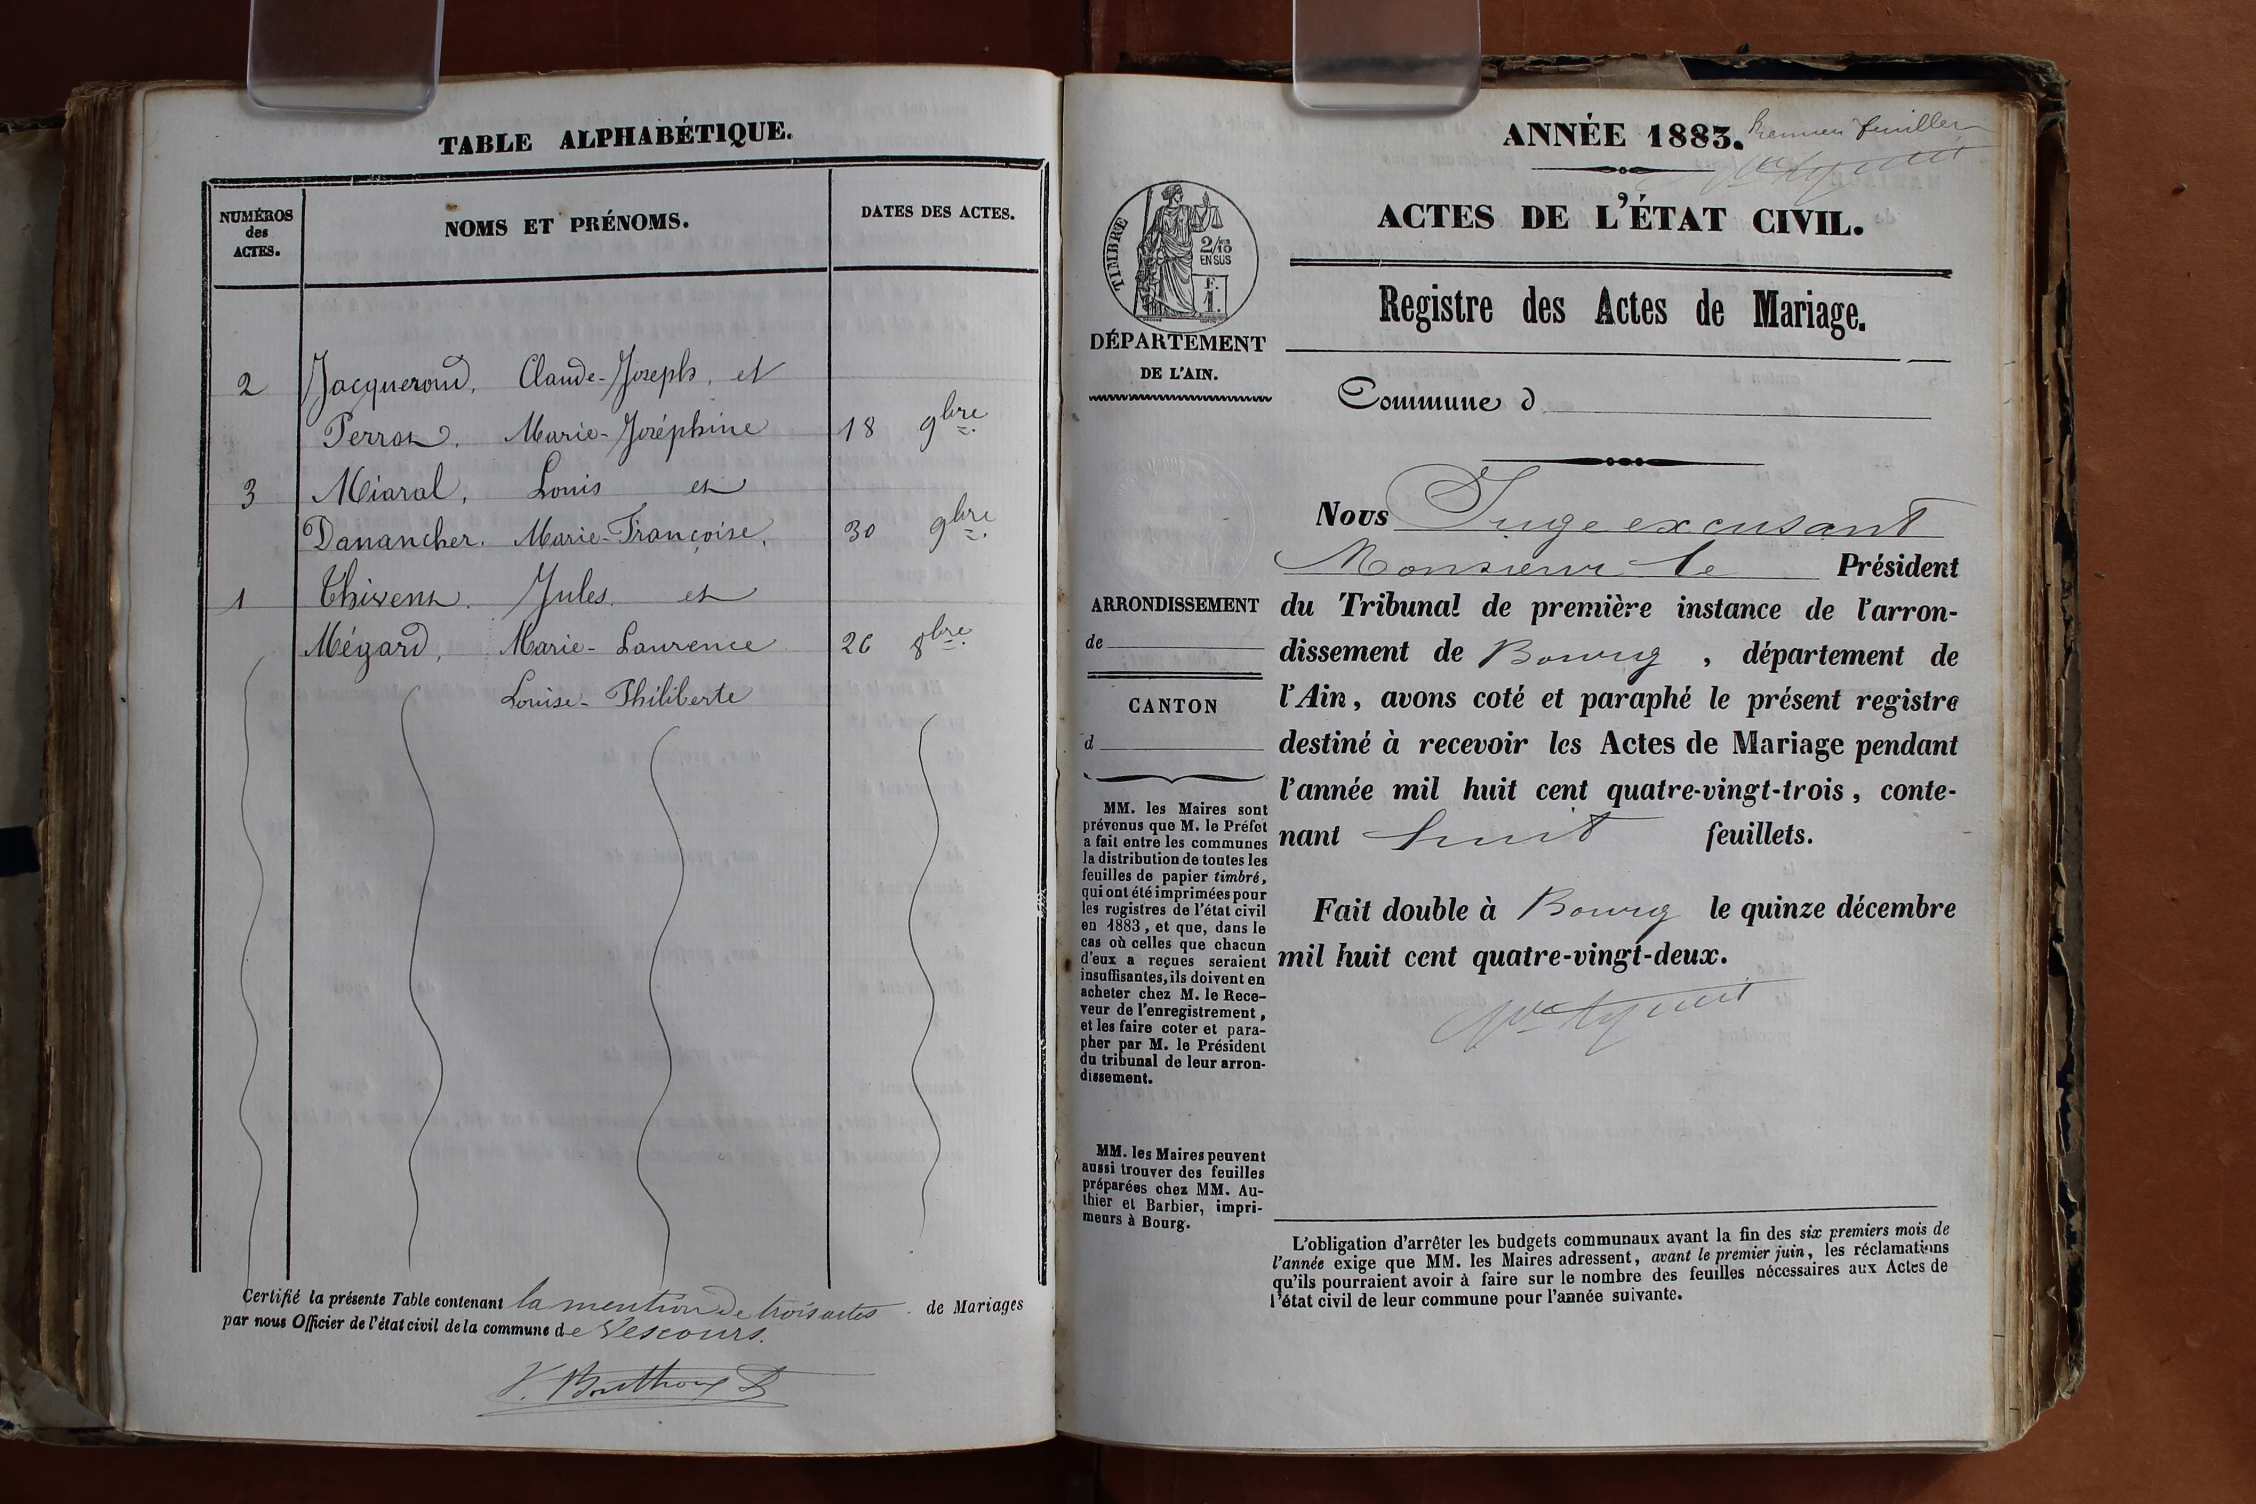 TABLE ALPHABÉTIQUE.
NUMÉROS
des
ACTES.
NOMS ET PRÉNOMS.
DATES DES ACTES.
2 Jacquerond, Claude-Joseph, et
Perrot, Marie-Joséphine 18 9bre
3 Miaral, Louis et
Danancher. Marie-Françoise, 30 9bre.
1 Thivent. Jules. et
Mégard, Marie-Laurence 26 8bre.
Louise-Philiberte
Certifié la présente Table contenant la mention de trois actes. de Mariages
par nous Officier de l'état civil de la commune de Vescours.
ANNÉE 1883. Premier feuillet
ACTES DE L'ÉTAT CIVIL.
Registre des Actes de Mariage.
TIMBRE
2/10
EN SUS
F.
1.
DÉPARTEMENT
DE L'AIN.
Commune d
ARRONDISSEMENT
de
CANTON
d
MM. les Maires sont
prévenus que M. le Préfet
a fait entre les communes
la distribution de toutes les
feuilles de papier timbré,
qui ont été imprimées pour
les registres de l'état civil
en 1883, et que, dans le
cas où celles que chacun
d'eux a reçues seraient
insuffisantes, ils doivent en
acheter chez M. le Rece-
veur de l'enregistrement,
et les faire coter et para-
pher par M. le Président
du tribunal de leur arron-
dissement.
MM. les Maires peuvent
aussi trouver des feuilles
préparées chez MM. Au-
thier et Barbier, impri-
meurs à Bourg.
Nous Juge excusant
Monsieur le Président
du Tribunal de première instance de l'arron-
dissement de Bourg, département de
l'Ain, avons coté et paraphé le présent registre
destiné à recevoir les Actes de Mariage pendant
l'année mil huit cent quatre-vingt-trois, conte-
nant huit feuillets.
Fait double à Bourg le quinze décembre
mil huit cent quatre-vingt-deux.
L'obligation d'arrêter les budgets communaux avant la fin des six premiers mois de
l'année exige que MM. les Maires adressent, avant le premier juin, les réclamations
qu'ils pourraient avoir à faire sur le nombre des feuilles nécessaires aux Actes de
l'état civil de leur commune pour l'année suivante.